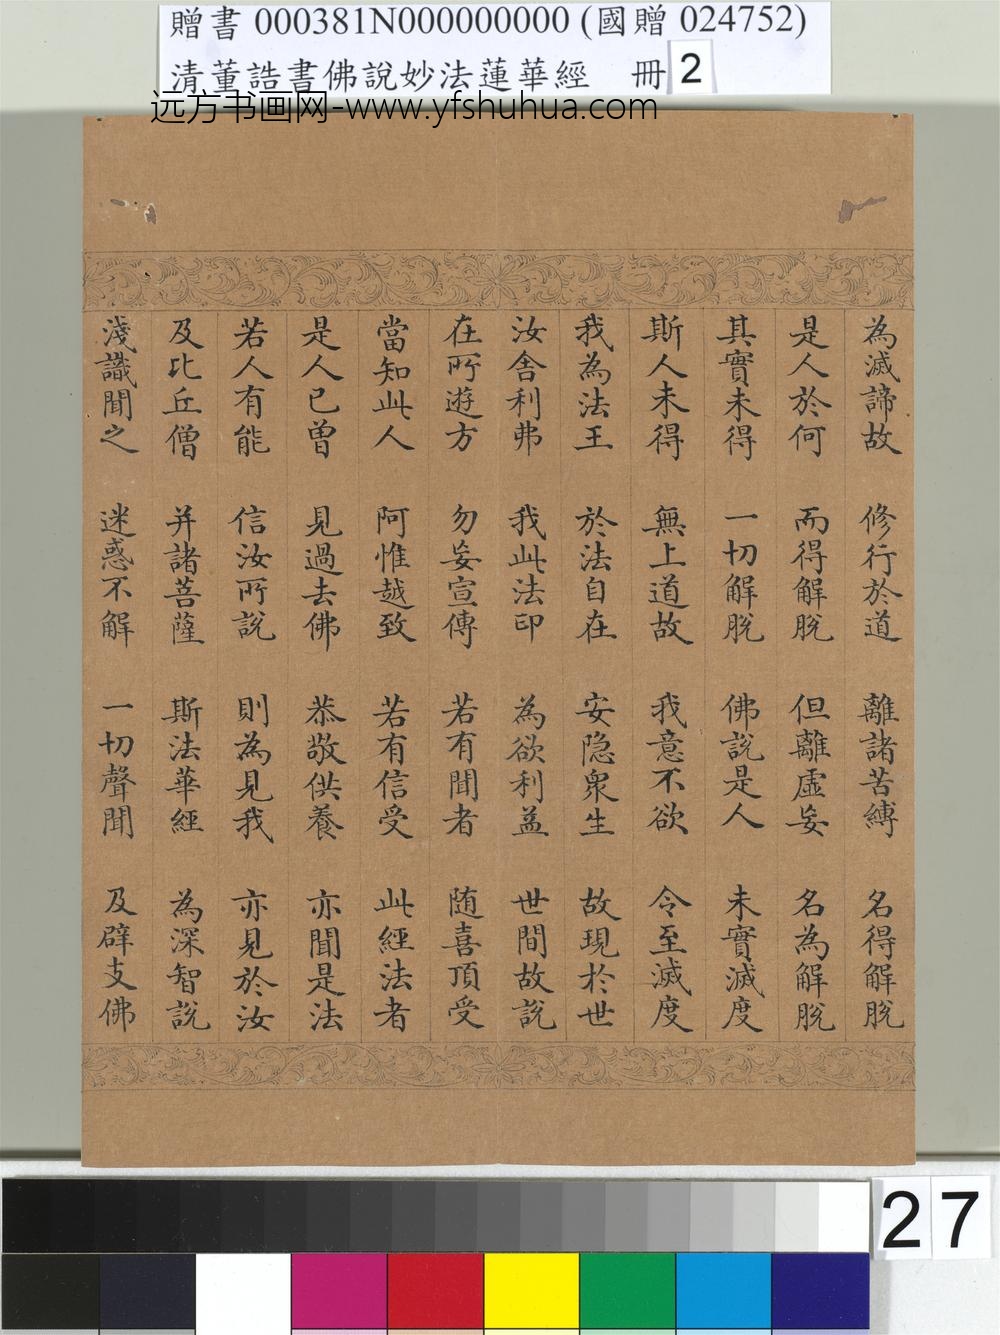 贈書 000381N000000000 (國贈 024752)
清董誥書佛說妙法蓮華經 冊 2
远方书画网-www.yfshuhua.com
為滅諦故 修行於道 離諸苦縛 名得解脫
是人於何 而得解脫 但離虛妄 名為解脫
其實未得 一切解脫 佛說是人 未實滅度
斯人未得 無上道故 我意不欲 令至滅度
我為法王 於法自在 安隐眾生 故現於世
汝舍利弗 我此法印 為欲利益 世間故說
在所遊方 勿妄宣傳 若有聞者 随喜頂受
當知此人 阿惟越致 若有信受 此經法者
是人已曾 見過去佛 恭敬供養 亦聞是法
若人有能 信汝所說 則為見我 亦見於汝
及比丘僧 并諸菩薩 斯法華經 為深智說
淺識聞之 迷惑不解 一切聲聞 及辟支佛
27